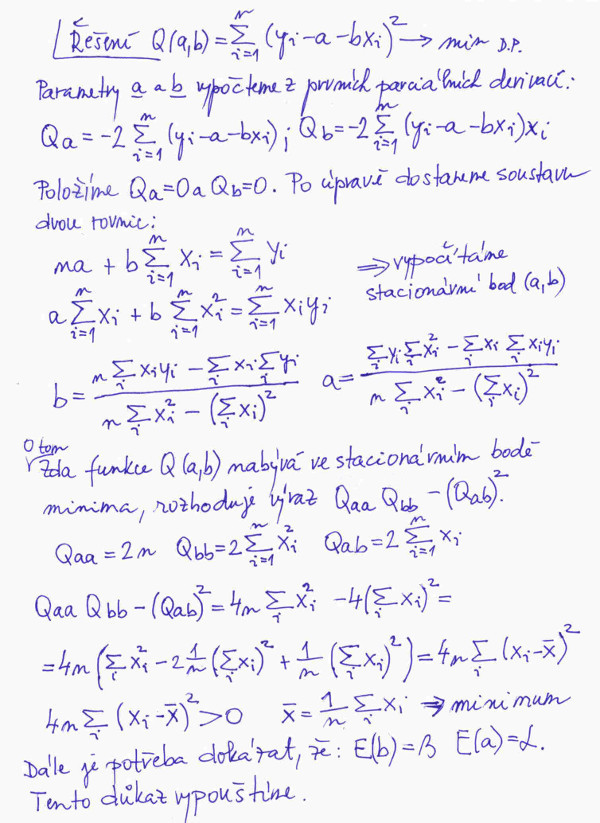 Řešení Q(a,b) = ∑_{i=1}^{n} (y_i - a - bx_i)² → min D.P.
Parametry a a b vypočteme z prvních parciálních derivací:
Q_a = -2 ∑_{i=1}^{n} (y_i - a - bx_i) ; Q_b = -2 ∑_{i=1}^{n} (y_i - a - bx_i)x_i
Položíme Q_a = 0 a Q_b = 0. Po úpravě dostaneme soustavu
dvou rovnic:
na + b ∑_{i=1}^{n} x_i = ∑_{i=1}^{n} y_i
⇒ vypočítáme
a ∑_{i=1}^{n} x_i + b ∑_{i=1}^{n} x_i² = ∑_{i=1}^{n} x_i y_i
stacionární bod (a,b)
b = (n ∑_i x_i y_i - ∑_i x_i ∑_i y_i) / (n ∑_i x_i² - (∑_i x_i)²) a = (∑_i y_i ∑_i x_i² - ∑_i x_i ∑_i x_i y_i) / (n ∑_i x_i² - (∑_i x_i)²)
O tom
zda funkce Q(a,b) nabývá ve stacionárním bodě
minima, rozhoduje výraz Q_aa Q_bb - (Q_ab)².
Q_aa = 2n Q_bb = 2 ∑_{i=1}^{n} x_i² Q_ab = 2 ∑_{i=1}^{n} x_i
Q_aa Q_bb - (Q_ab)² = 4n ∑_i x_i² - 4(∑_i x_i)² =
= 4n (∑_i x_i² - 2 1/n (∑_i x_i)² + 1/n (∑_i x_i)²) = 4n ∑_i (x_i - x̄)²
4n ∑_i (x_i - x̄)² > 0 x̄ = 1/n ∑_i x_i ⇒ minimum
Dále je potřeba dokázat, že: E(b) = β E(a) = α.
Tento důkaz vypouštíme.